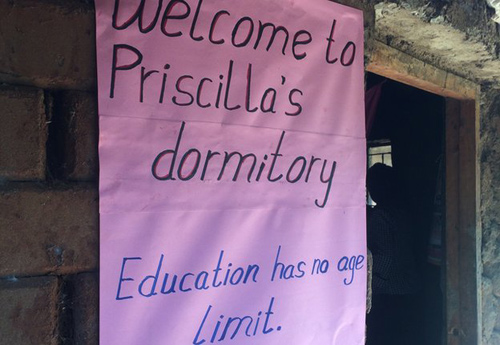 Welcome to
Priscilla's
dormitory
Education has no age
limit.